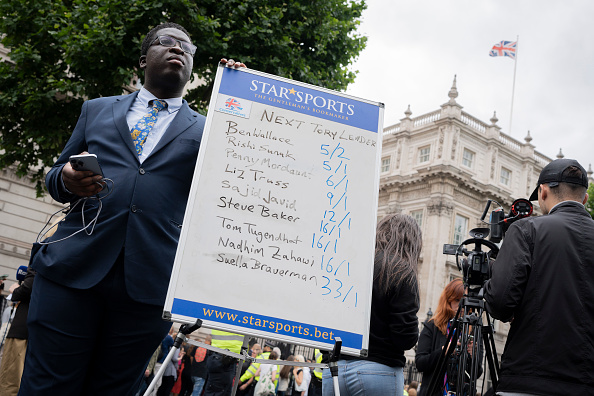 STAR SPORTS
THE GENTLEMAN'S BOOKMAKER
NEXT TORY LEADER
Ben Wallace 5/2
Rishi Sunak 5/1
Penny Mordaunt 6/1
Liz Truss 9/1
Sajid Javid 12/1
Steve Baker 16/1
Tom Tugendhat 16/1
Nadhim Zahawi 16/1
Suella Braverman 33/1
www.starsports.bet